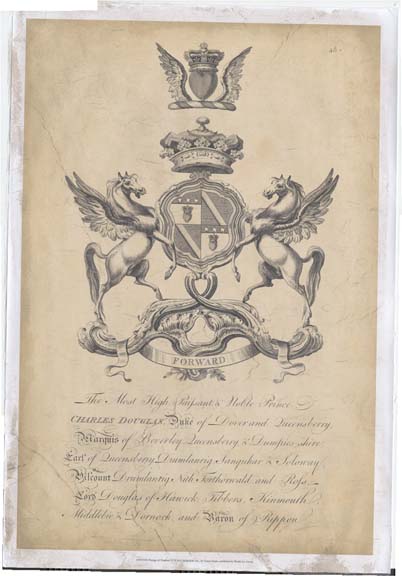 48
FORWARD
The Most High, Puissant & Noble Prince
CHARLES DOUGLAS, Duke of Dover and Queensberry,
Marquis of Beverley, Queensbery & Dumfries-shire
Earl of Queensberry, Drumlanrig Sanquhar & Soloway
Viscount Drumlanrig Nith Torthorwald and Ross
Lord Douglas of Hawick, Tibbers, Kinmouth
Middlebie & Dornock, and Baron of Rippon